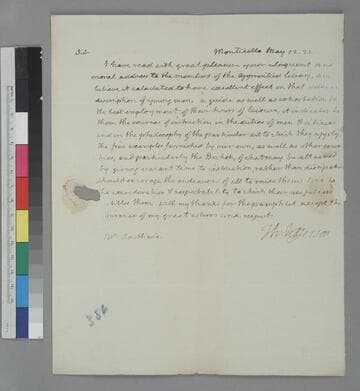 Sir Monticello May 12. 22.
I have read with great pleasure your eloquent and
moral address to the members of the Apprentices library, and
believe it calculated to have excellent effect on that
description of young men. a guide as well as exhortation to
the best employment of their hours of leisure, it indicates to
them the sources of instruction in the duties of
and in the philosophy of the particular art to which they apply
the fine examples furnished by our own, as well as other
and particularly the British, of what may be
by giving vacant time to instruction rather than dissipation
should encourage the endeavors of all to raise themselves to
the consideration & respectability to which their
them. with my thanks for the pamphlet accept the
assurance of my great esteem and respect.
Th: Jefferson
Mr.
386